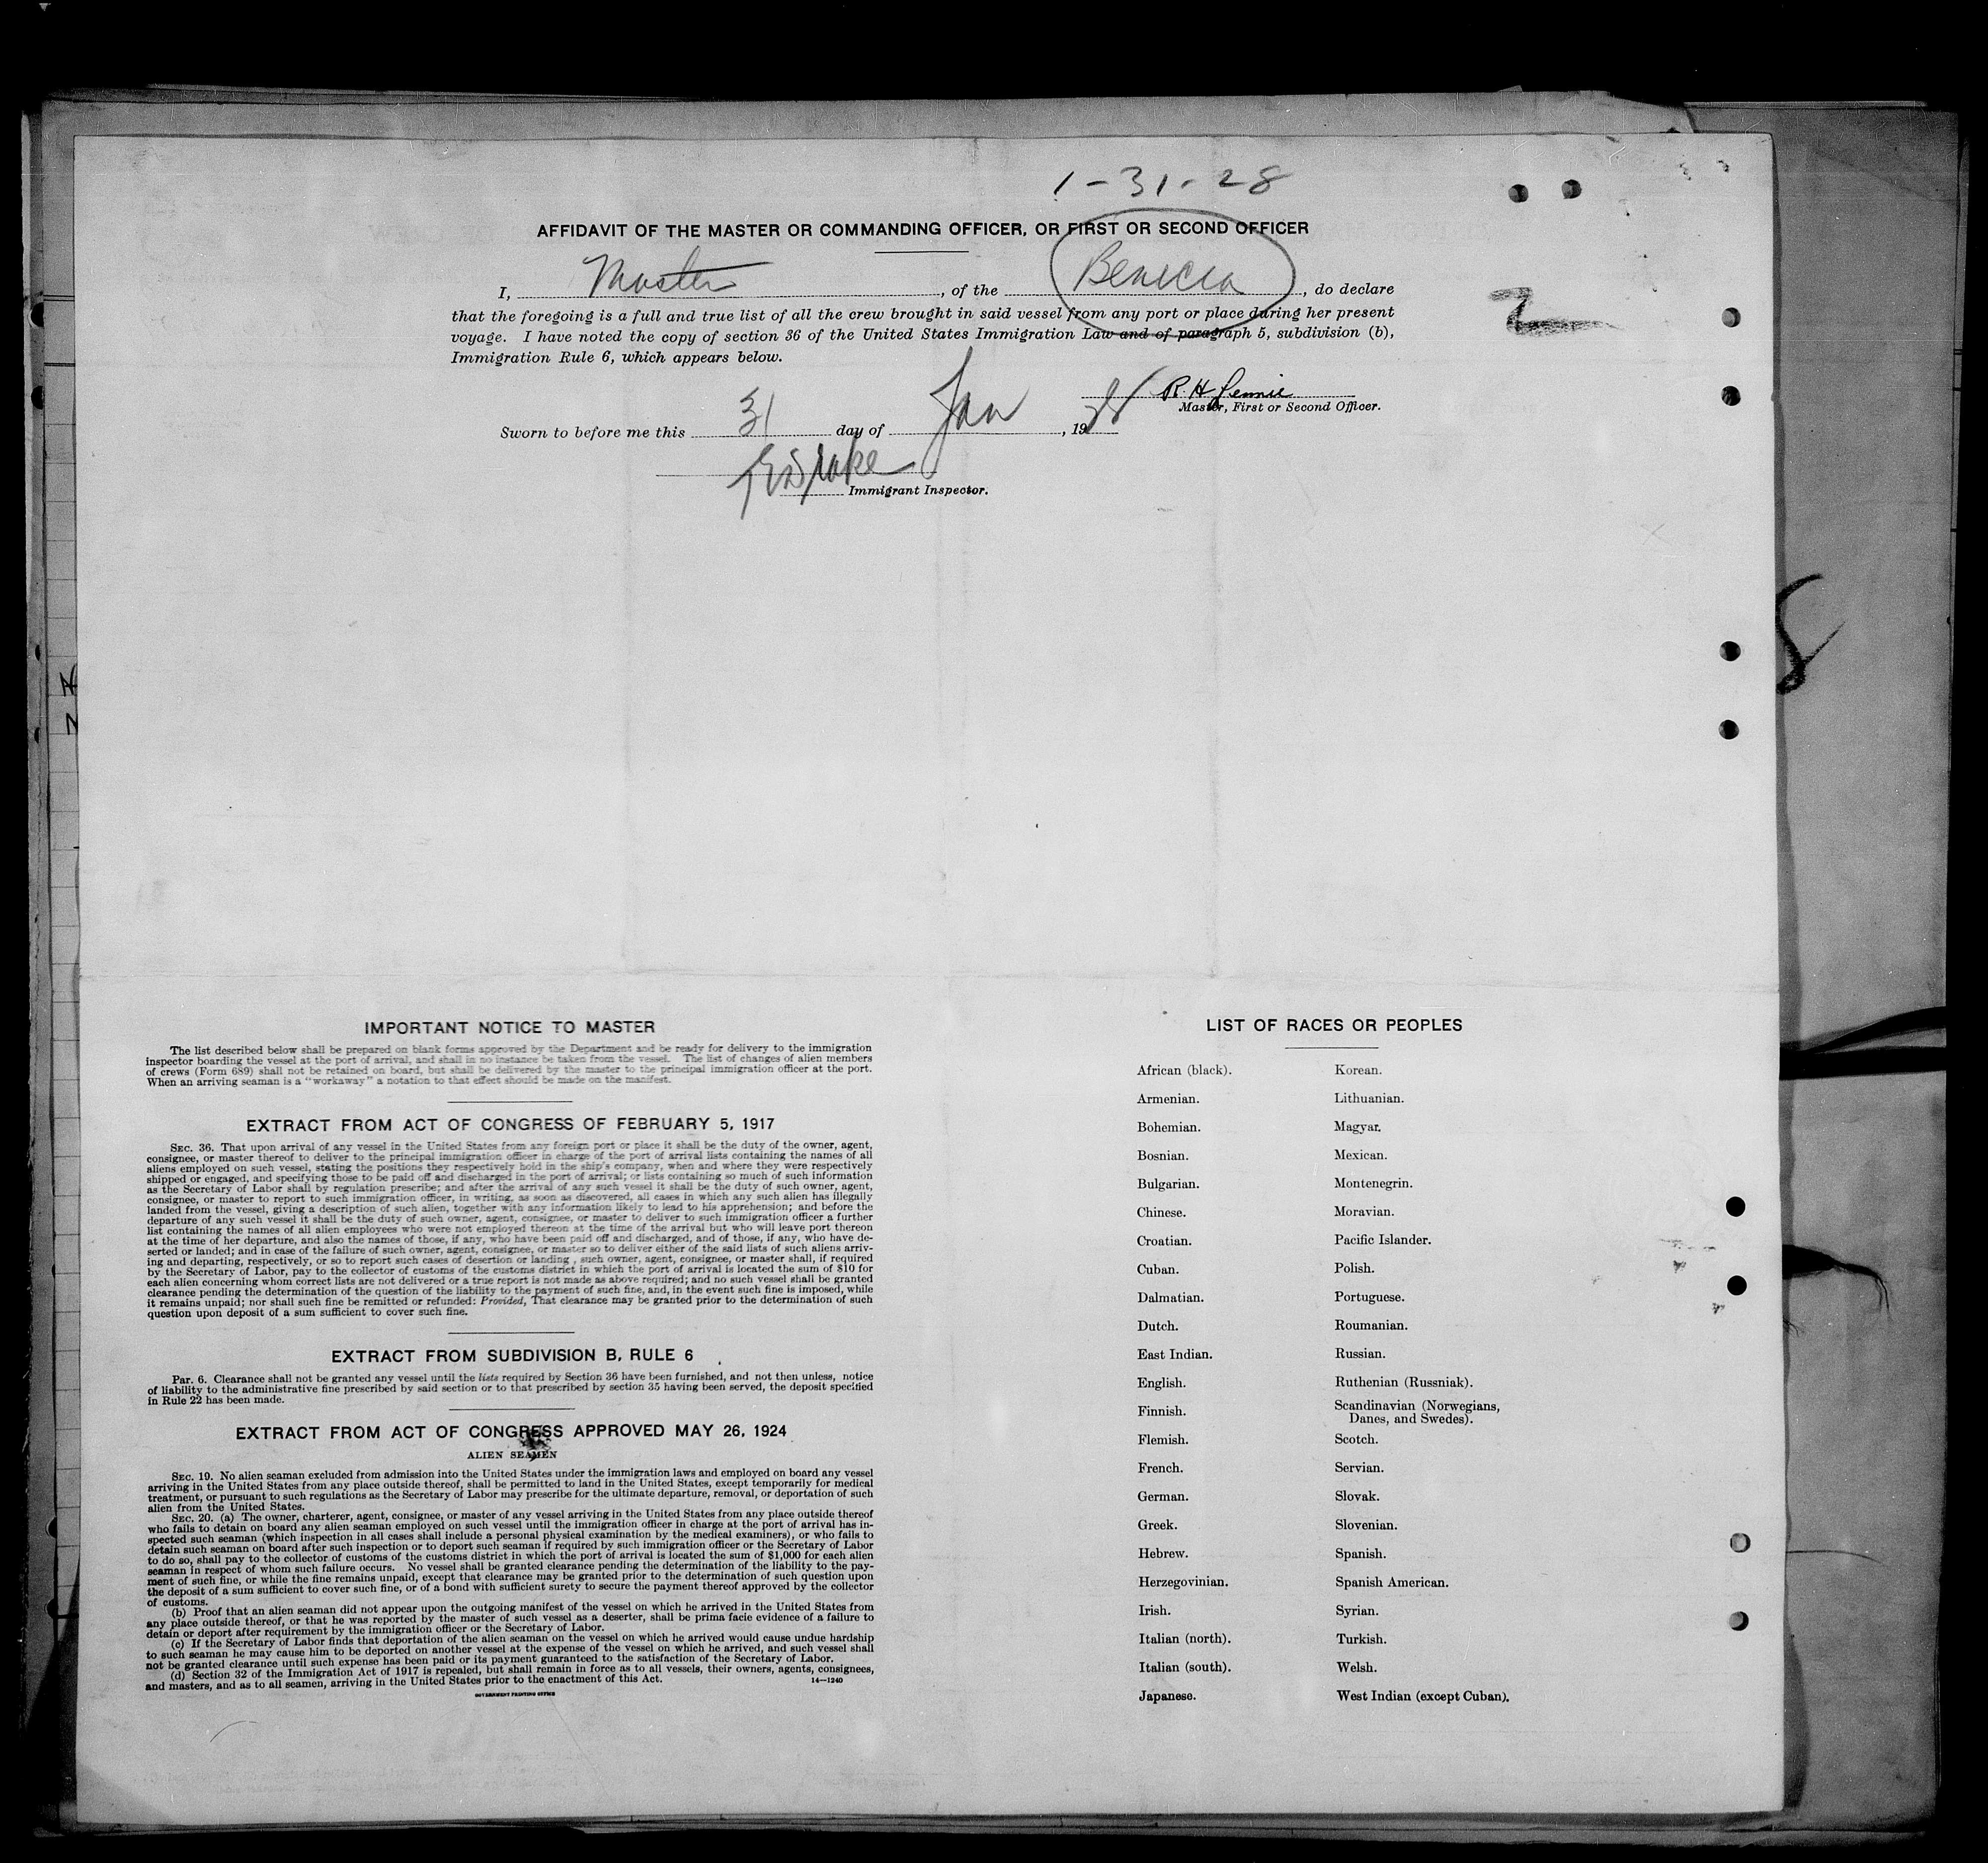 1-31-28
AFFIDAVIT OF THE MASTER OR COMMANDING OFFICER, OR FIRST OR SECOND OFFICER
I, Master, of the Benicia, do declare
that the foregoing is a full and true list of all the crew brought in said vessel from any port or place during her present
voyage. I have noted the copy of section 36 of the United States Immigration Law and of paragraph 5, subdivision (b),
Immigration Rule 6, which appears below.
2
R. H.
Master, First or Second Officer.
Sworn to before me this 31 day of Jan, 1928
Immigrant Inspector.
IMPORTANT NOTICE TO MASTER
The list described below shall be prepared on blank forms approved by the Department and be ready for delivery to the immigration
inspector boarding the vessel at the port of arrival, and shall in no instance be taken from the vessel. The list of changes of alien members
of crews (Form 689) shall not be retained on board, but shall be delivered by the master to the principal immigration officer at the port.
When an arriving seaman is a "workaway" a notation to that effect should be made on the manifest.
EXTRACT FROM ACT OF CONGRESS OF FEBRUARY 5, 1917
SEC. 36. That upon arrival of any vessel in the United States from any foreign port or place it shall be the duty of the owner, agent,
consignee, or master thereof to deliver to the principal immigration officer in charge of the port of arrival lists containing the names of all
aliens employed on such vessel, stating the positions they respectively hold in the ship's company, when and where they were respectively
shipped or engaged, and specifying those to be paid off and discharged in the port of arrival; or lists containing so much of such information
as the Secretary of Labor shall by regulation prescribe; and after the arrival of any such vessel it shall be the duty of such owner, agent,
consignee, or master to report to such immigration officer, in writing, as soon as discovered, all cases in which any such alien has illegally
landed from the vessel, giving a description of such alien, together with any information likely to lead to his apprehension; and before the
departure of any such vessel it shall be the duty of such owner, agent, consignee, or master to deliver to such immigration officer a further
list containing the names of all alien employees who were not employed thereon at the time of the arrival but who will leave port thereon
at the time of her departure, and also the names of those, if any, who have been paid off and discharged, and of those, if any, who have de-
serted or landed; and in case of the failure of such owner, agent, consignee, or master so to deliver either of the said lists of such aliens arriv-
ing and departing, respectively, or so to report such cases of desertion or landing, such owner, agent, consignee, or master shall, if required
by the Secretary of Labor, pay to the collector of customs of the customs district in which the port of arrival is located the sum of $10 for
each alien concerning whom correct lists are not delivered or a true report is not made as above required; and no such vessel shall be granted
clearance pending the determination of the question of the liability to the payment of such fine, and, in the event such fine is imposed, while
it remains unpaid; nor shall such fine be remitted or refunded: Provided, That clearance may be granted prior to the determination of such
question upon deposit of a sum sufficient to cover such fine.
EXTRACT FROM SUBDIVISION B, RULE 6
Par. 6. Clearance shall not be granted any vessel until the lists required by Section 36 have been furnished, and not then unless, notice
of liability to the administrative fine prescribed by said section or to that prescribed by section 35 having been served, the deposit specified
in Rule 22 has been made.
EXTRACT FROM ACT OF CONGRESS APPROVED MAY 26, 1924
ALIEN SEAMEN
SEC. 19. No alien seaman excluded from admission into the United States under the immigration laws and employed on board any vessel
arriving in the United States from any place outside thereof, shall be permitted to land in the United States, except temporarily for medical
treatment, or pursuant to such regulations as the Secretary of Labor may prescribe for the ultimate departure, removal, or deportation of such
alien from the United States.
SEC. 20. (a) The owner, charterer, agent, consignee, or master of any vessel arriving in the United States from any place outside thereof
who fails to detain on board any alien seaman employed on such vessel until the immigration officer in charge at the port of arrival has in-
spected such seaman (which inspection in all cases shall include a personal physical examination by the medical examiners), or who fails to
detain such seaman on board after such inspection or to deport such seaman if required by such immigration officer or the Secretary of Labor
to do so, shall pay to the collector of customs of the customs district in which the port of arrival is located the sum of $1,000 for each alien
seaman in respect of whom such failure occurs. No vessel shall be granted clearance pending the determination of the liability to the pay-
ment of such fine, or while the fine remains unpaid, except that clearance may be granted prior to the determination of such question upon
the deposit of a sum sufficient to cover such fine, or of a bond with sufficient surety to secure the payment thereof approved by the collector
of customs.
(b) Proof that an alien seaman did not appear upon the outgoing manifest of the vessel on which he arrived in the United States from
any place outside thereof, or that he was reported by the master of such vessel as a deserter, shall be prima facie evidence of a failure to
detain or deport after requirement by the immigration officer or the Secretary of Labor.
(c) If the Secretary of Labor finds that deportation of the alien seaman on the vessel on which he arrived would cause undue hardship
to such seaman he may cause him to be deported on another vessel at the expense of the vessel on which he arrived, and such vessel shall
not be granted clearance until such expense has been paid or its payment guaranteed to the satisfaction of the Secretary of Labor.
(d) Section 32 of the Immigration Act of 1917 is repealed, but shall remain in force as to all vessels, their owners, agents, consignees,
and masters, and as to all seamen, arriving in the United States prior to the enactment of this Act.
14—1240
GOVERNMENT PRINTING OFFICE
LIST OF RACES OR PEOPLES
African (black).
Armenian.
Bohemian.
Bosnian.
Bulgarian.
Chinese.
Croatian.
Cuban.
Dalmatian.
Dutch.
East Indian.
English.
Finnish.
Flemish.
French.
German.
Greek.
Hebrew.
Herzegovinian.
Irish.
Italian (north).
Italian (south).
Japanese.
Korean.
Lithuanian.
Magyar.
Mexican.
Montenegrin.
Moravian.
Pacific Islander.
Polish.
Portuguese.
Roumanian.
Russian.
Ruthenian (Russniak).
Scandinavian (Norwegians,
Danes, and Swedes).
Scotch.
Servian.
Slovak.
Slovenian.
Spanish.
Spanish American.
Syrian.
Turkish.
Welsh.
West Indian (except Cuban).